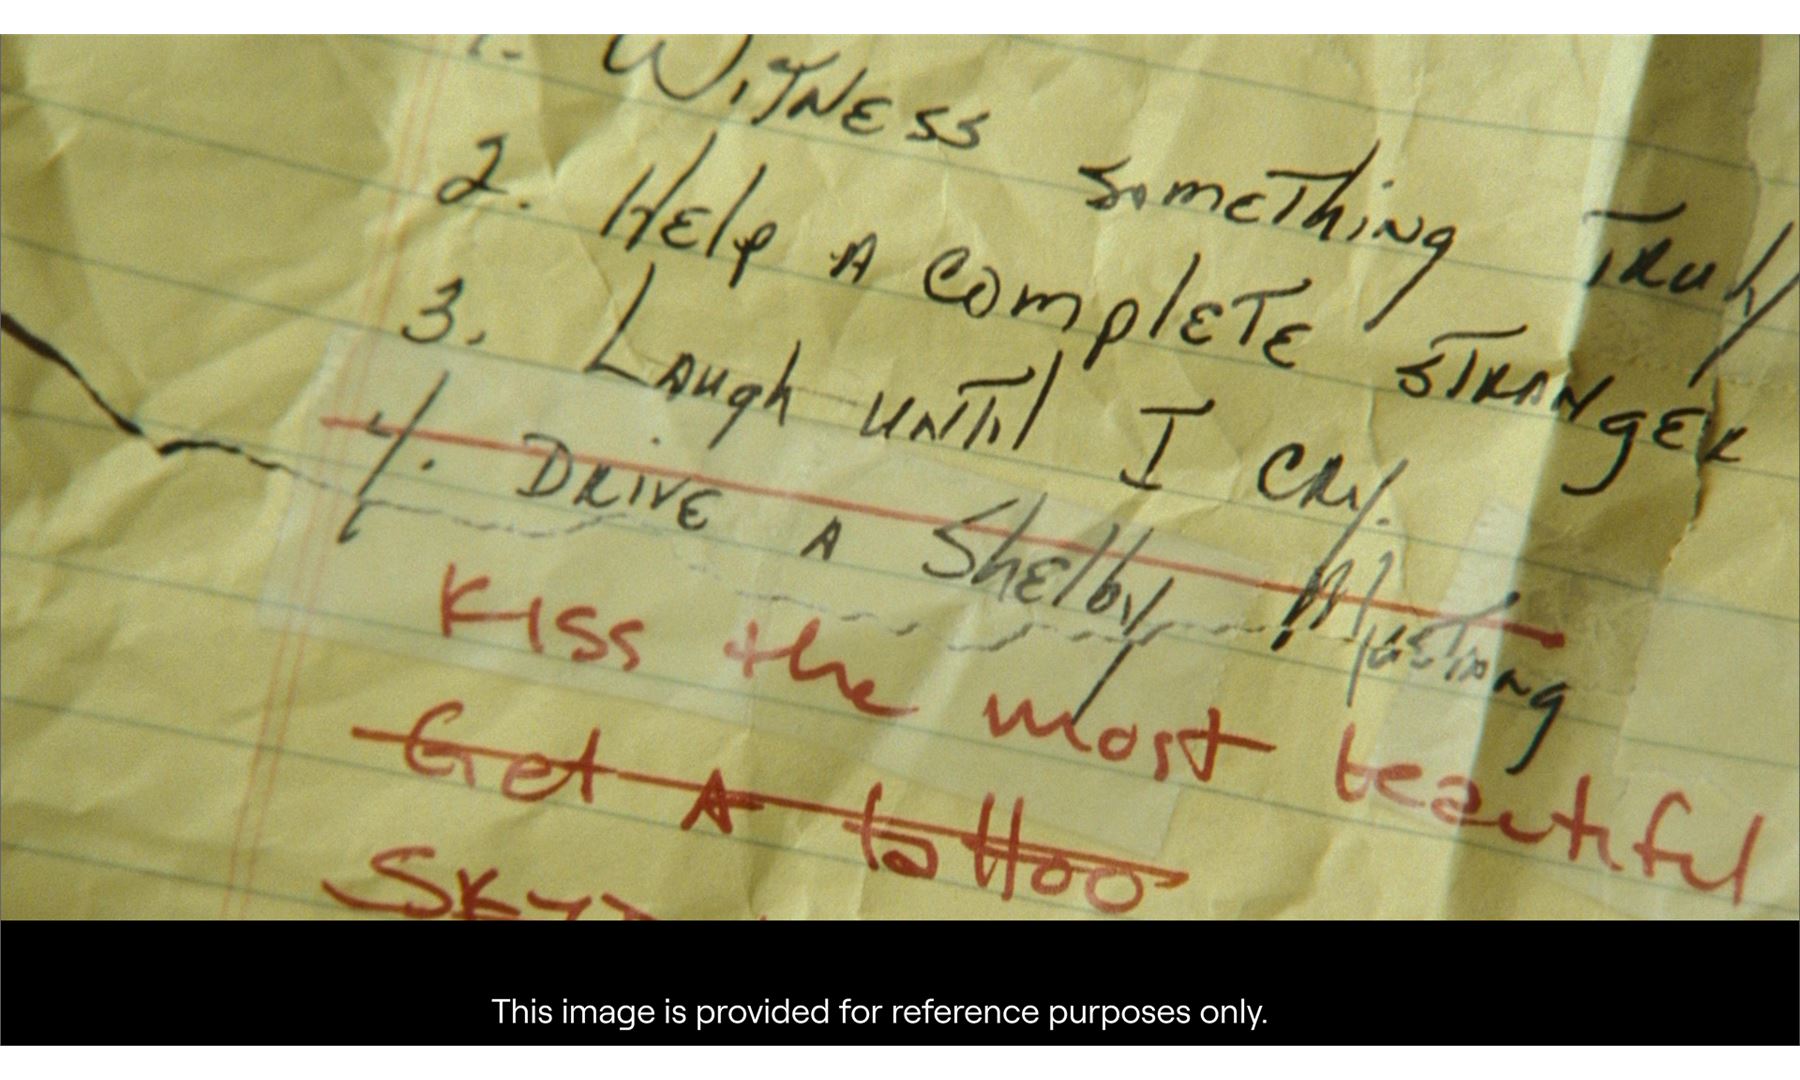 1. WITNESS SOMETHING TRULY
2. HELP A COMPLETE STRANGER
3. LAUGH UNTIL I CRY.
4. DRIVE A SHELBY MUSTANG
Kiss the most beautiful
Get A tattoo
This image is provided for reference purposes only.